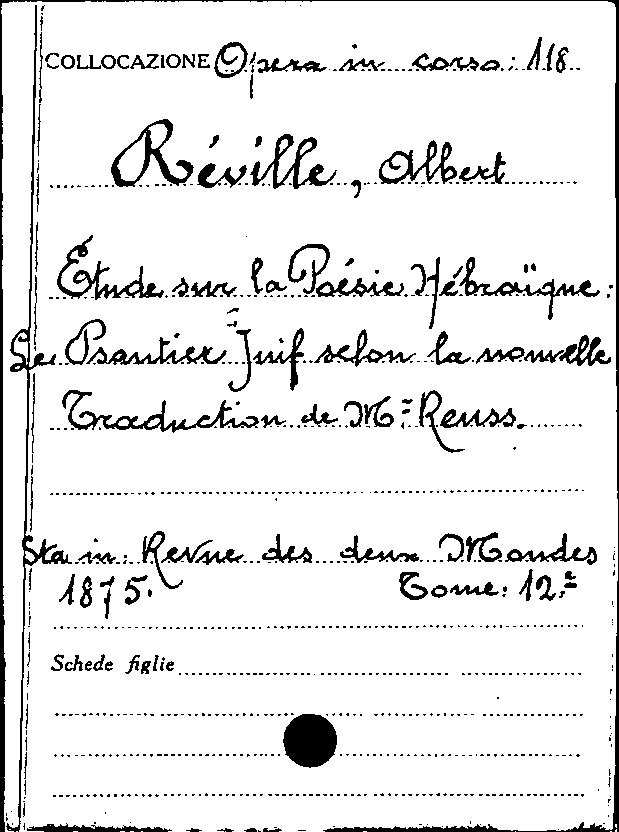 COLLOCAZIONE Opera in corso: 118
Réville, Albert
Étude sur la Poésie Hébraïque:
Le Psautier Juif selon la nouvelle
Traduction de Mr Reuss.
Sta in: Revue des deux Mondes
1875. Tome: 12.e
Schede figlie